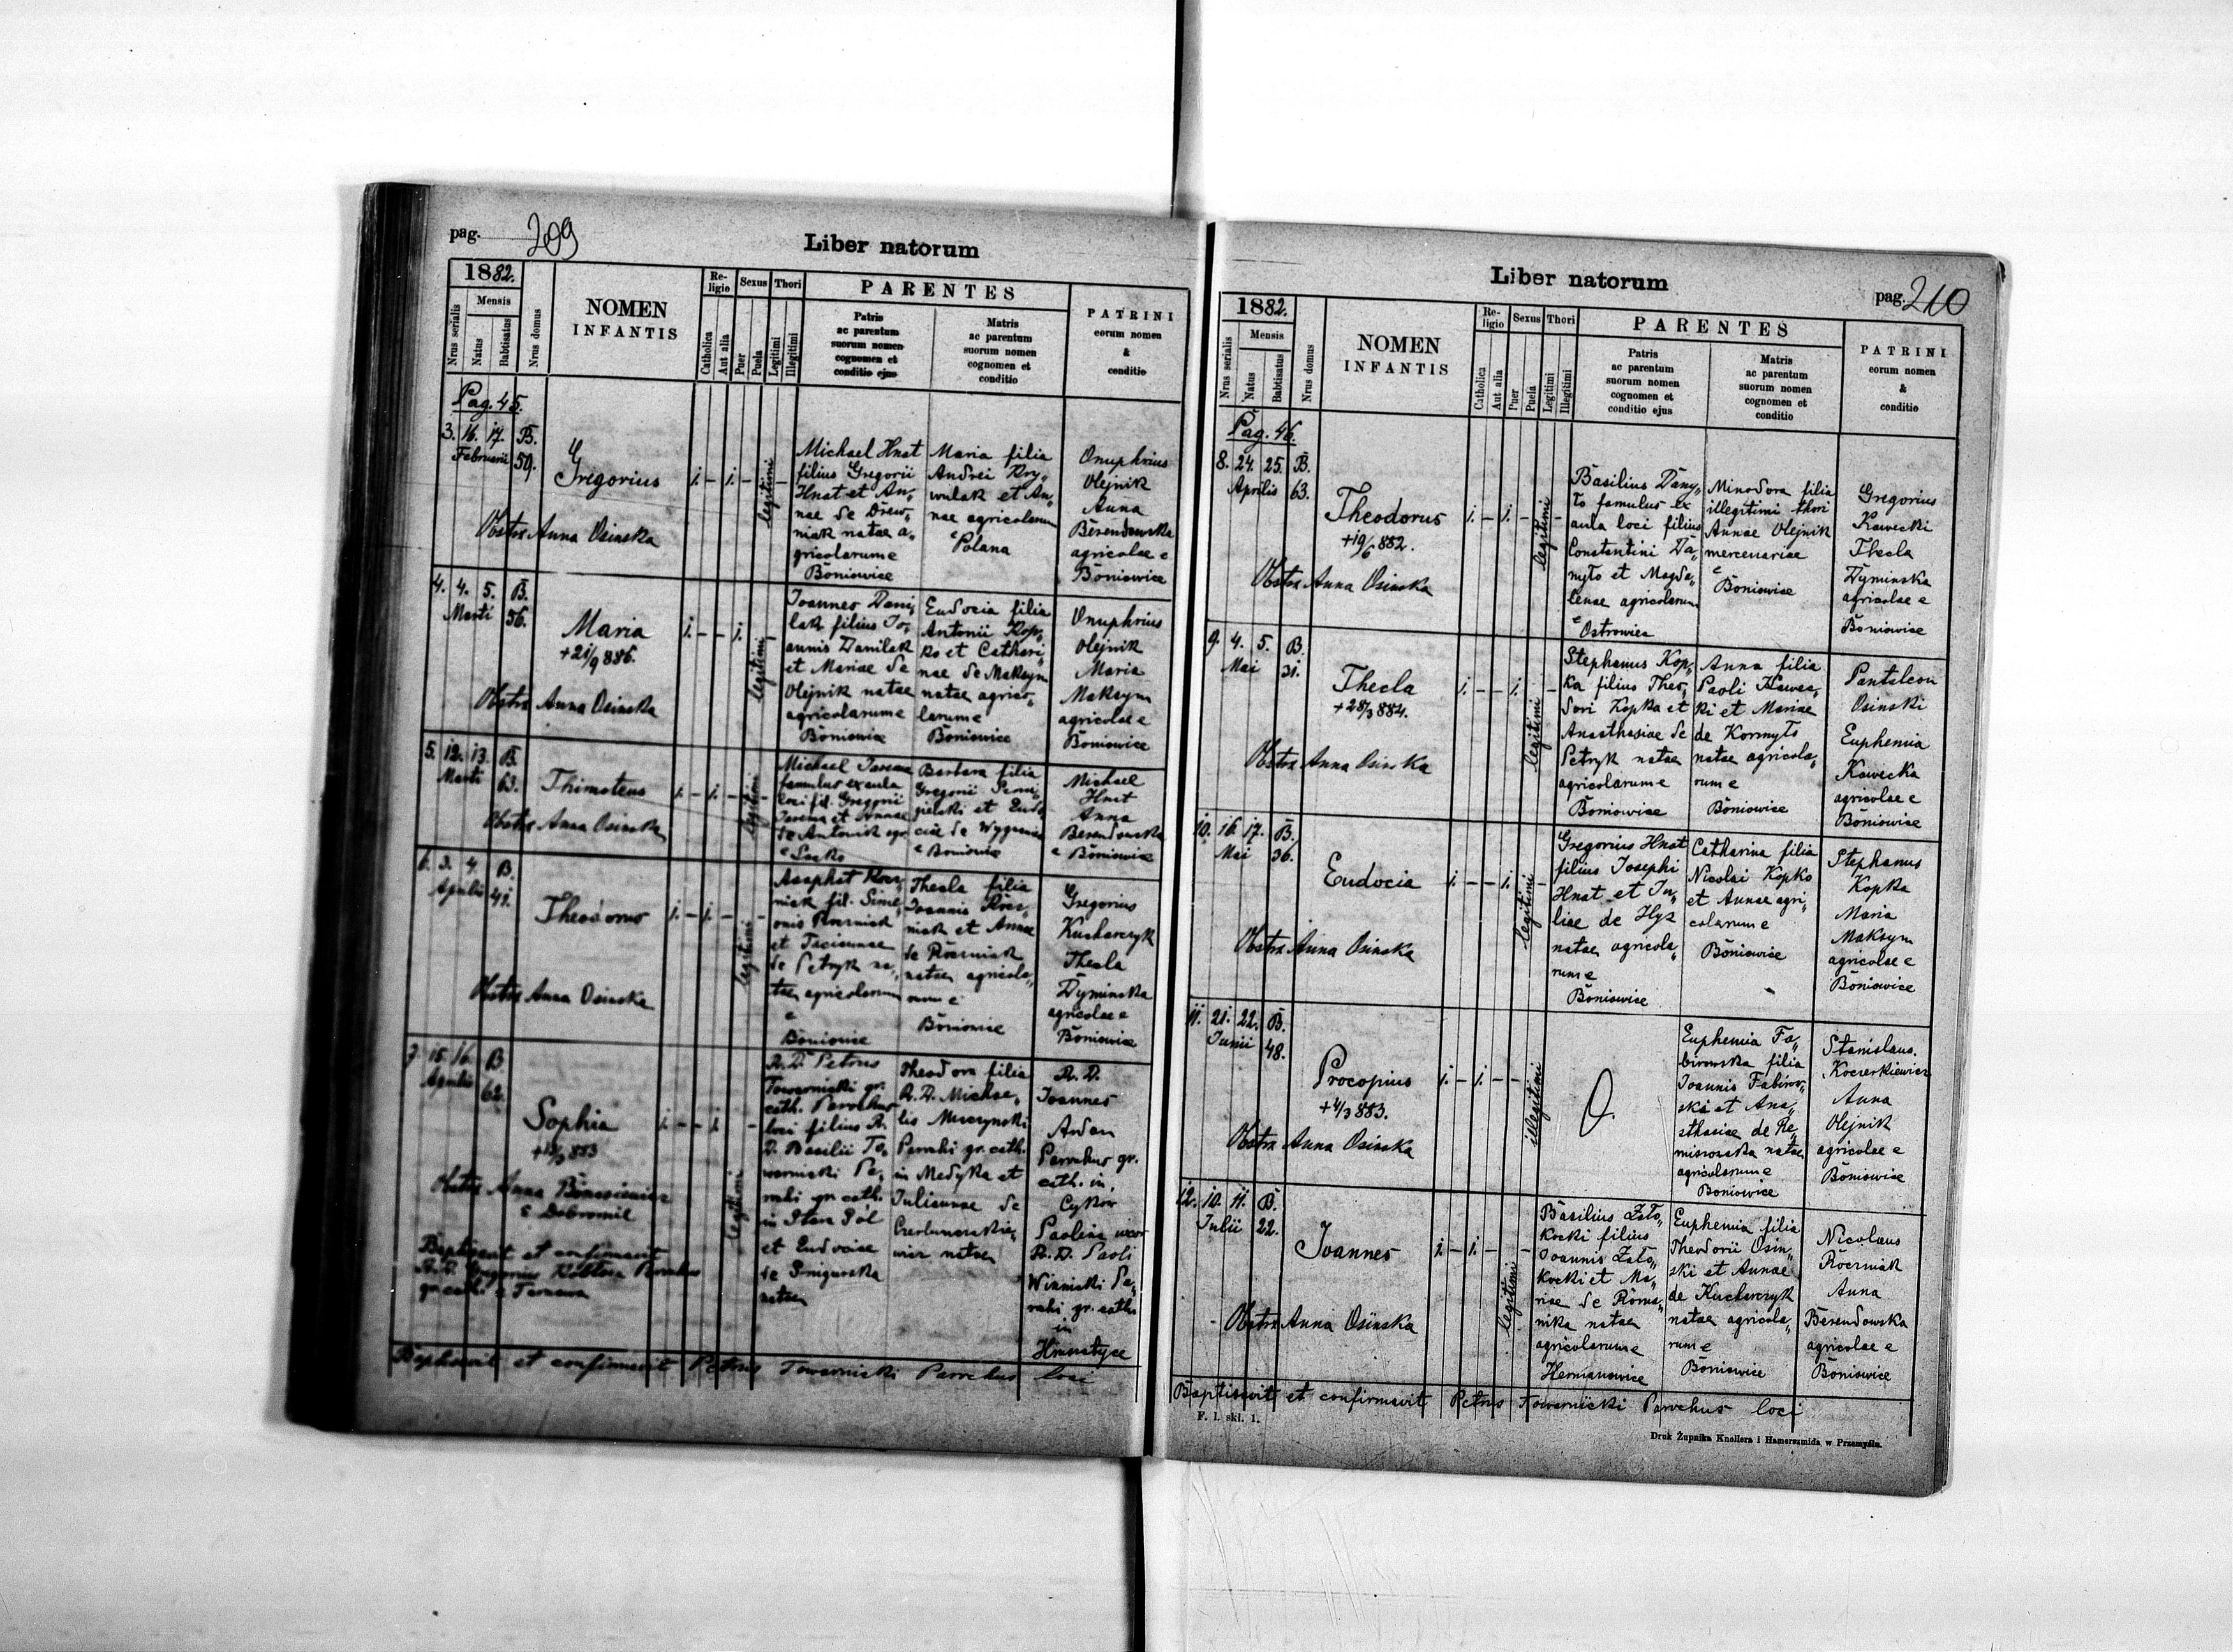 pag. 209
Liber natorum
1882.
Nrus serialis
Mensis
Natus
Babtisatus
Nrus domus
NOMEN
INFANTIS
Re-
ligio
Catholica
Aut alia
Sexus
Puer
Puela
Thori
Legitimi
Illegitimi
PARENTES
Patris
ac parentum
suorum nomen
cognomen et
conditio ejus
Matris
ac parentum
suorum nomen
cognomen et
conditio
PATRINI
eorum nomen
&
conditio
Pag. 45.
3. 16. 17. B.
Februarii 59.
Gregorius
1. – 1. – legitimi –
Obstrx Anna Osinska
Michael Hnat
filius Gregorii
Hnat et An„
nae de Drew„
niak natae a„
gricolarum e
Boniowice
Maria filia
Andrei Kry„
wulak et An„
nae agricolarum
e Polana
Onuphrius
Olejnik
Anna
Berendowska
agricolae e
Boniowice
4. 4. 5. B.
Marti 56.
Maria
+21/9 886.
1. – – 1. legitimi
Obstrx Anna Osinska
Joannes Dani„
lak filius Jo„
annis Danilak
et Mariae de
Olejnik natae
agricolarum e
Boniowice
Eudocia filia
Antonii Kop„
ko et Cathari„
nae de Maksym
natae agrico„
larum e
Boniowice
Onuphrius
Olejnik
Maria
Maksym
agricolae e
Boniowice
5. 12. 13. B.
Marti 63.
Thimoteus
1. – 1. – legitimi –
Obstrx Anna Osinska
Michael
famulus ex aula
loci fil. Gregorii
et Annae
de Antonik agr
e
Barbara filia
Gregorii
et Eudo
ciae de
e Boniowice
Michael
Hnat
Anna
Berendowska
e Boniowice
6. 3. 4. B.
Aprilis 41.
Theodorus
1. – 1. – legitimi –
Obstrx Anna Osinska
Asaphat Rocz„
niak fil. Sime„
onis Roczniak
et Tacianae
de Petryk na„
tae agricolarum
e
Boniowice
Thecla filia
Joannis Rocz„
niak et Annae
de Roczniak
natae agricola„
rum e
Boniowice
Gregorius
Kucharczyk
Thecla
Dyminska
agricolae e
Boniowice
7. 15. 16. B.
Aprilis 62.
Sophia
1. – – 1. legitimi –
Obstrx Anna
e Dobromil
Baptisavit et confirmavit
R.D. Gregorius Parochus
gr. cath. e Tarnawa
R. D. Petrus
Towarnicki gr.
cath. Parochus
loci filius R.
D. Basilii To„
warnicki Pa„
rochi gr. cath.
in Stara Sól
et Eudociae
de
natae
Theodora filia
R. D. Michae„
lis
Parochi gr. cath.
in Medyka et
Julianae de
natae
R. D.
Joannes
Ardan
Parochus gr.
cath. in
Cyków
Paolina uxor
R. D. Paoli
Winnicki Pa„
rochi gr. cath.
in
Hruszatyce
Baptisavit et confirmavit Petrus Towarnicki Parochus loci
Liber natorum
pag. 210
1882.
Nrus serialis
Mensis
Natus
Babtisatus
Nrus domus
NOMEN
INFANTIS
Re-
ligio
Catholica
Aut alia
Sexus
Puer
Puela
Thori
Legitimi
Illegitimi
PARENTES
Patris
ac parentum
suorum nomen
cognomen et
conditio ejus
Matris
ac parentum
suorum nomen
cognomen et
conditio
PATRINI
eorum nomen
&
conditio
Pag. 46.
8. 24. 25. B.
Aprilis 63.
Theodorus
+19/6 882.
1. – 1. – legitimi –
Obstrx Anna Osinska
Basilius Dany„
ło famulus ex
aula loci filius
Constantini Da„
nyło et Magda„
lenae agricolarum
e Ostrowiec
Minodora filia
illegitimi thori
Annae Olejnik
mercenariae
e
Boniowice
Gregorius
Kawecki
Thecla
Dyminska
agricolae e
Boniowice
9. 4. 5. B.
Mai 31.
Thecla
+28/3 884.
1. – – 1. legitimi –
Obstrx Anna Osinska
Stephanus Kop„
ka filius Theo„
dori Kopka et
Anasthasiae de
Petryk natae
agricolarum e
Boniowice
Anna filia
Paoli Kawec„
ki et Mariae
de Kormyło
natae agricola„
rum e
Boniowice
Pantaleon
Osinski
Euphemia
Kawecka
agricolae e
Boniowice
10. 16. 17. B.
Mai 36.
Eudocia
1. – – 1. legitimi –
Obstrx Anna Osinska
Gregorius Hnat
filius Josephi
Hnat et Ju„
liae de Hyz
natae agricola„
rum e
Boniowice
Catharina filia
Nicolai Kopko
et Annae agri„
colarum e
Boniowice
Stephanus
Kopka
Maria
Maksym
agricolae e
Boniowice
11. 21. 22. B.
Junii 48.
Procopius
+4/3 883.
1. – 1. – – illegitimi
Obstrx Anna Osinska
O.
Euphemia Fa„
birowska filia
Joannis Fabirow„
ski et Ana„
sthasiae de Re„
misiowska natae
agricolarum e
Boniowice
Stanislaus
Koczerkiewicz
Anna
Olejnik
agricolae e
Boniowice
12. 10. 11. B.
Julii 22.
Joannes
1. – 1. – legitimi –
Obstrx Anna Osinska
Basilius Zało„
kocki filius
Joannis Zało„
kocki et Ma„
riae de Roma„
nika natae
agricolarum e
Hermanowice
Euphemia filia
Theodorii Osin„
ski et Annae
de Kucharczyk
natae agricola„
rum e
Boniowice
Nicolaus
Roczniak
Anna
Berendowska
agricolae e
Boniowice
Baptisavit et confirmavit Petrus Towarnicki Parochus loci
F. l. skł. 1.
Druk Żupnika Knollera i Hamerszmida w Przemyślu.